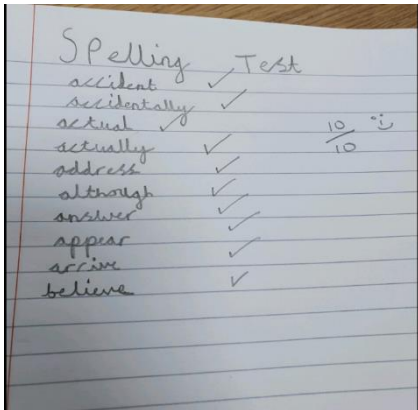 Spelling Test
accident ✓
accidentally ✓
actual ✓
actually ✓
address ✓
although ✓
answer ✓
appear ✓
arrive ✓
believe ✓
10/10 ☺